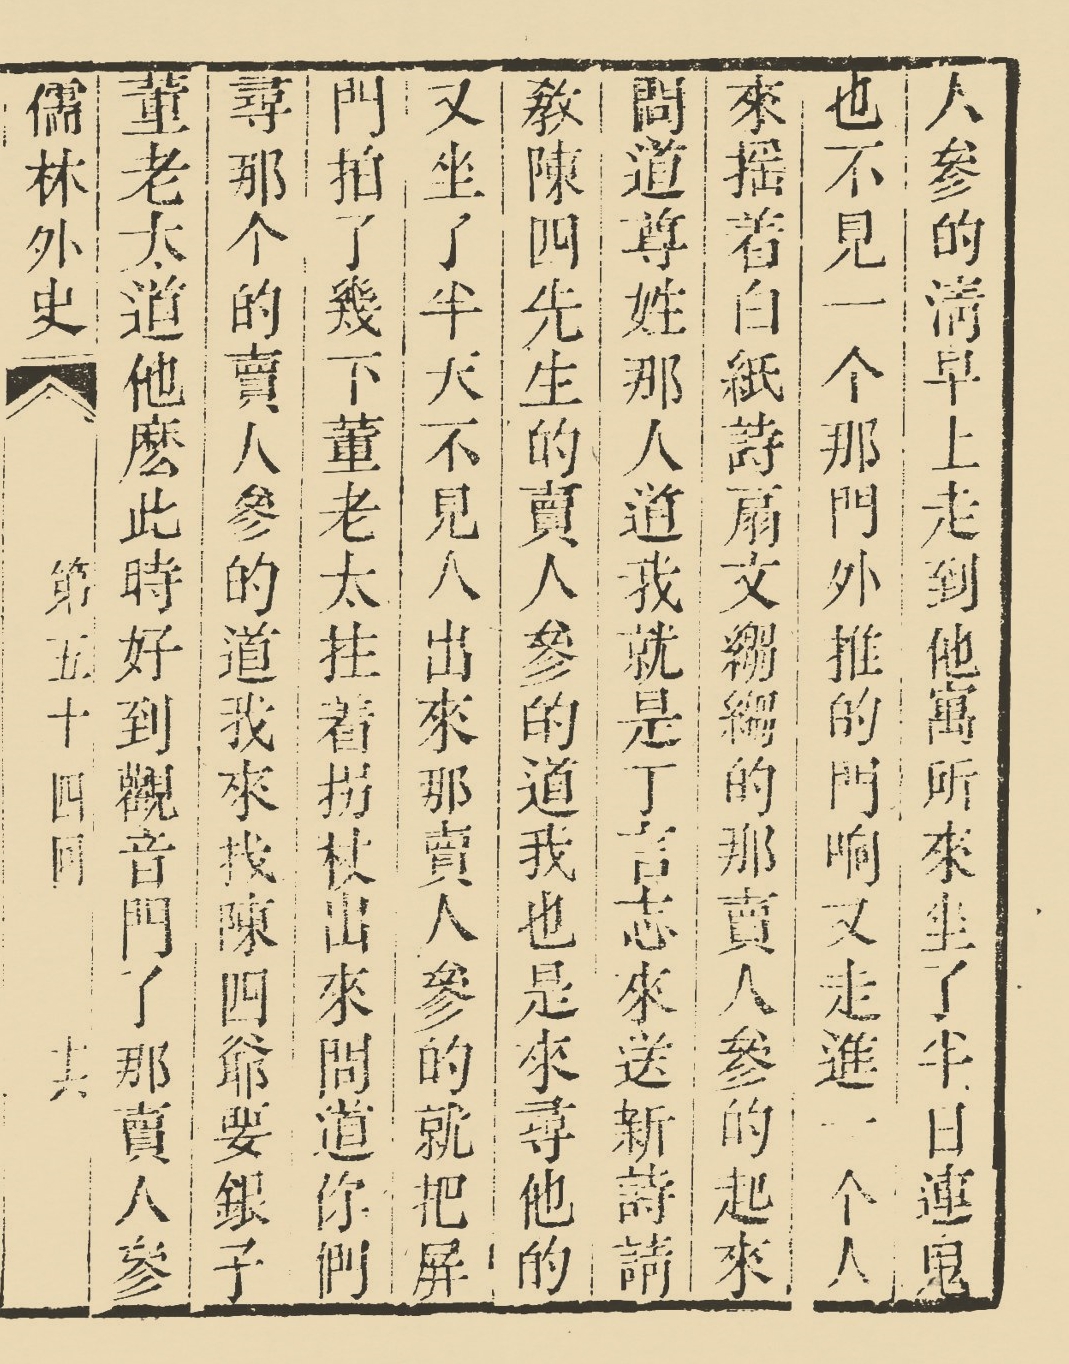 人參的清早上走到他寓所來坐了半日連鬼
也不見一个那門外推的門响又走進一个人
來摇着白紙詩扇文縐縐的那賣人參的起來
問道尊姓那人道我就是丁言志來送新詩請
敎陳四先生的賣人參的道我也是來尋他的
又坐了半天不見人出來那賣人參的就把屏
門拍了幾下董老太拄着拐杖出來問道你們
尋那个的賣人參的道我來找陳四爺要銀子
董老太道他麽此時好到觀音門了那賣人參
儒林外史 第五十四囘 十六